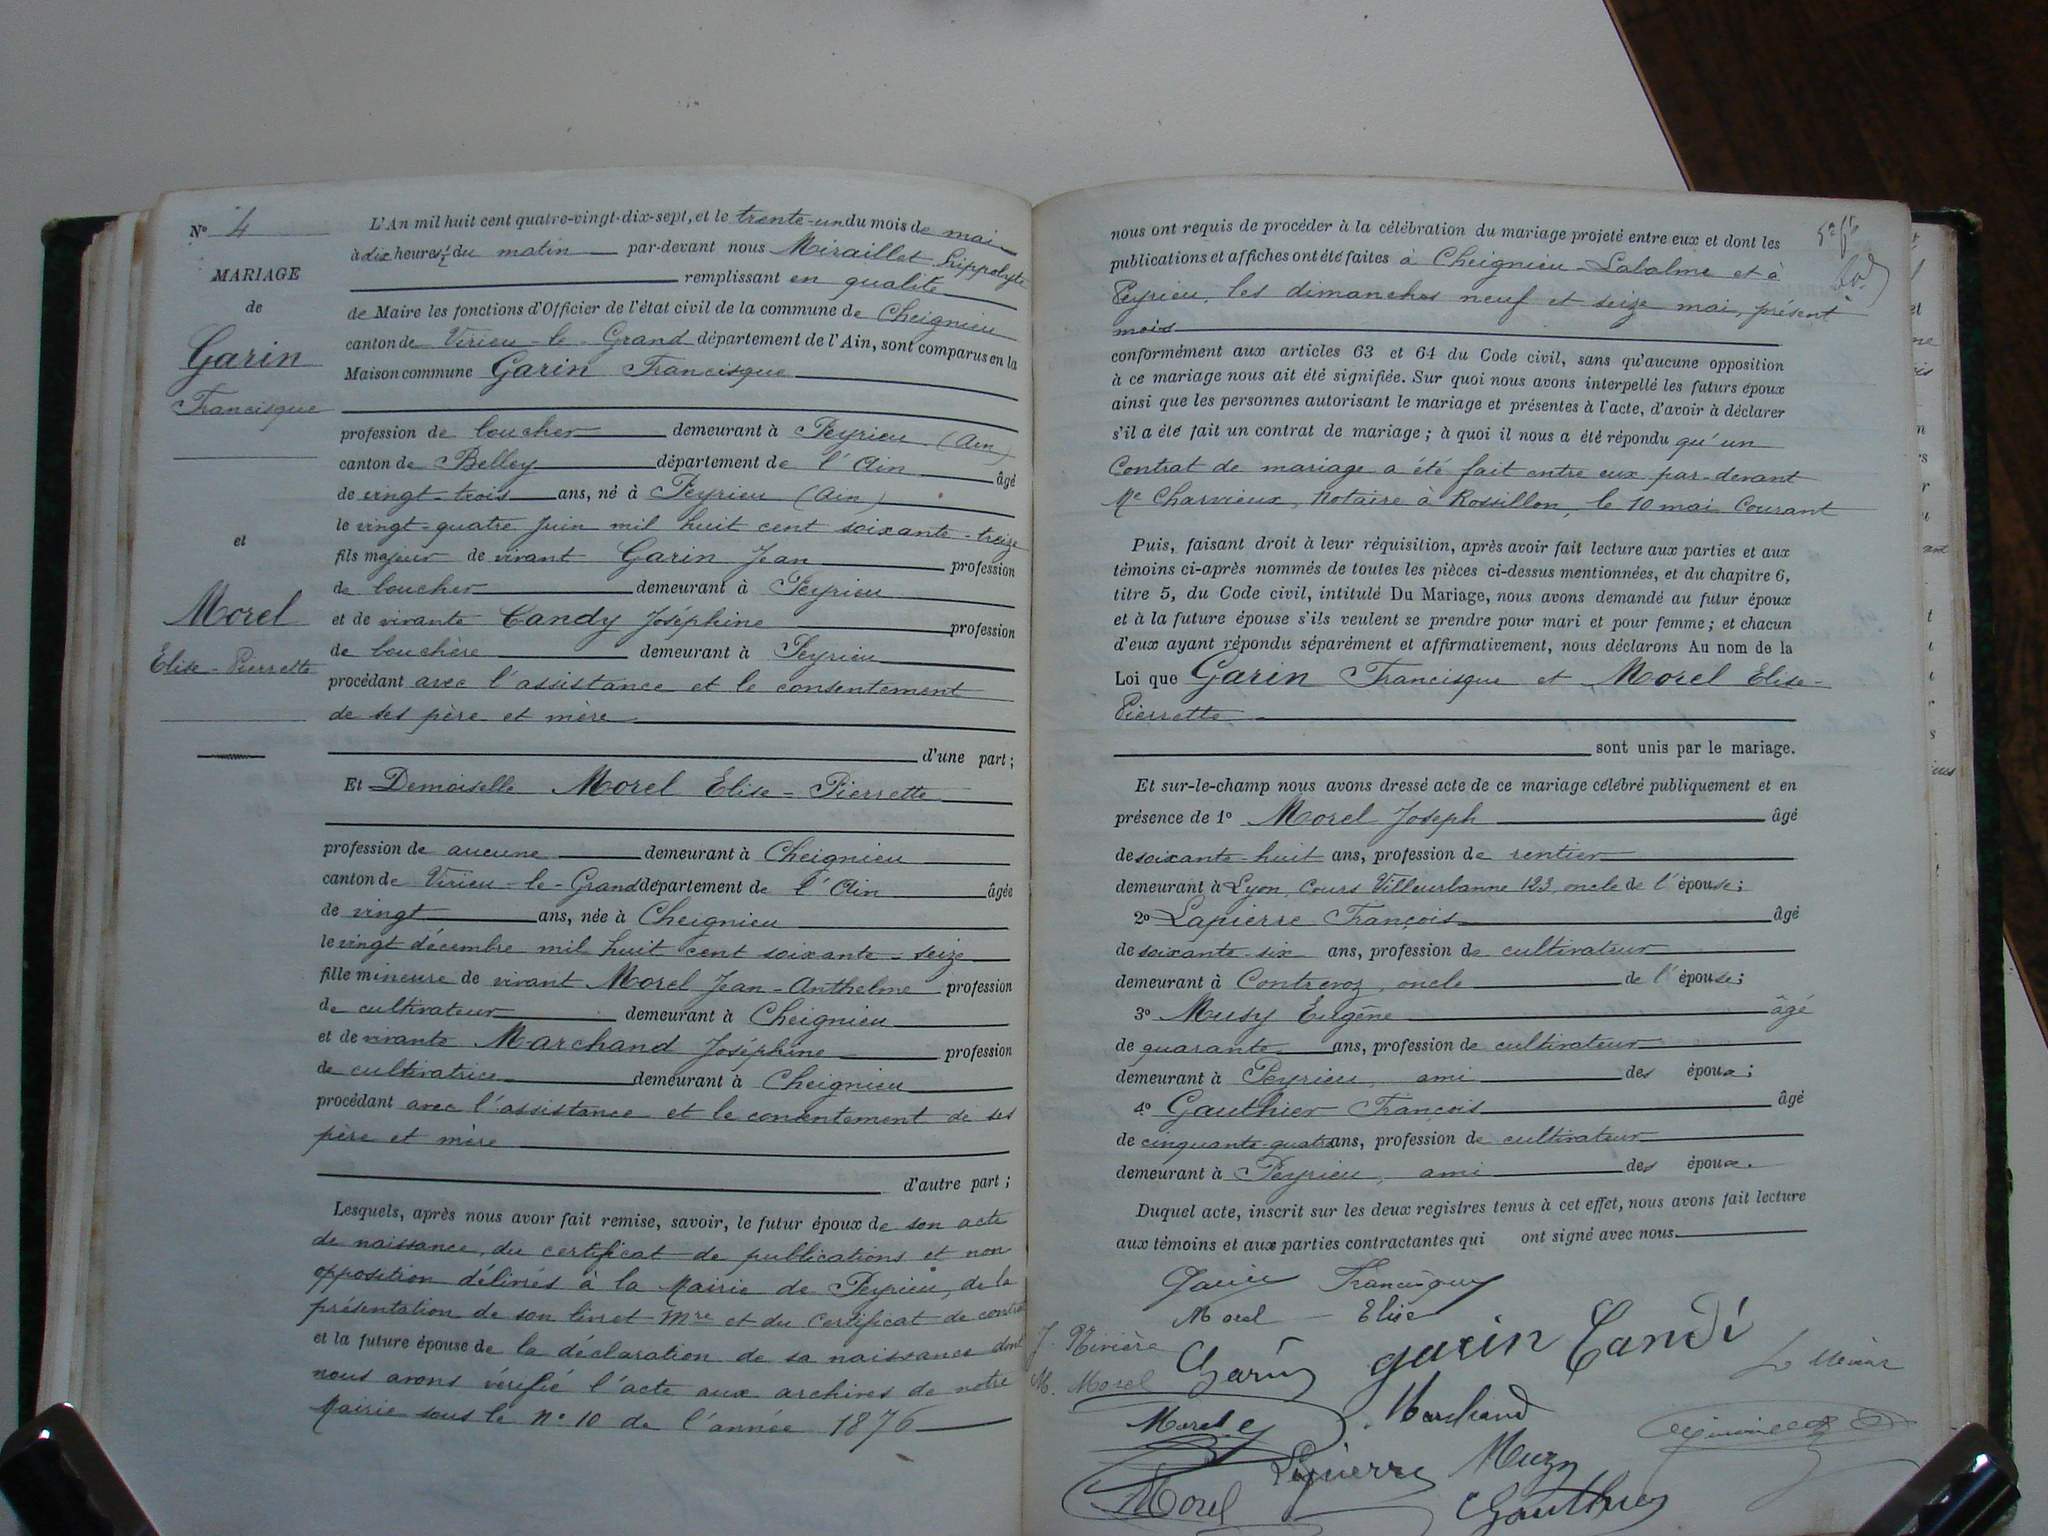 Nº 4
MARIAGE
de
Garin
Francisque
et
Morel
Elise-Pierrette
L'An mil huit cent quatre-vingt-dix-sept, et le trente-un du mois de mai
à dix heures ½ du matin par-devant nous Miraillet Hippolyte
remplissant en qualité
de Maire les fonctions d'Officier de l'état civil de la commune de Cheignieu
canton de Virieu-le-Grand département de l'Ain, sont comparus en la
Maison commune Garin Francisque
profession de boucher demeurant à Peyrieu (Ain)
canton de Belley département de l'Ain âgé
de vingt-trois ans, né à Peyrieu (Ain)
le vingt-quatre juin mil huit cent soixante-treize
fils majeur de vivant Garin Jean profession
de boucher demeurant à Peyrieu
et de vivante Candy Joséphine profession
de bouchère demeurant à Peyrieu
procédant avec l'assistance et le consentement
de ses père et mère
d'une part;
Et Demoiselle Morel Elise-Pierrette
profession de aucune demeurant à Cheignieu
canton de Virieu-le-Grand département de l'Ain âgée
de vingt ans, née à Cheignieu
le vingt décembre mil huit cent soixante-seize
fille mineure de vivant Morel Jean-Anthelme profession
de cultivateur demeurant à Cheignieu
et de vivante Marchand Joséphine profession
de cultivatrice demeurant à Cheignieu
procédant avec l'assistance et le consentement de ses
père et mère
d'autre part;
Lesquels, après nous avoir fait remise, savoir, le futur époux de son acte
de naissance, du certificat de publications et non
opposition délivrés à la Mairie de Peyrieu, de la
présentation de son livret Mre et du Certificat de contrat
et la future épouse de la déclaration de sa naissance dont
nous avons vérifié l'acte aux archives de notre
Mairie sous le Nº 10 de l'année 1876
nous ont requis de procéder à la célébration du mariage projeté entre eux et dont les
publications et affiches ont été faites à Cheignieu-Labalme et à
Peyrieu, les dimanches neuf et seize mai, présent
mois
conformément aux articles 63 et 64 du Code civil, sans qu'aucune opposition
à ce mariage nous ait été signifiée. Sur quoi nous avons interpellé les futurs époux
ainsi que les personnes autorisant le mariage et présentes à l'acte, d'avoir à déclarer
s'il a été fait un contrat de mariage; à quoi il nous a été répondu qu'un
Contrat de mariage a été fait entre eux par-devant
Me Charvieux, Notaire à Rossillon, le 10 mai Courant
Puis, faisant droit à leur réquisition, après avoir fait lecture aux parties et aux
témoins ci-après nommés de toutes les pièces ci-dessus mentionnées, et du chapitre 6,
titre 5, du Code civil, intitulé Du Mariage, nous avons demandé au futur époux
et à la future épouse s'ils veulent se prendre pour mari et pour femme; et chacun
d'eux ayant répondu séparément et affirmativement, nous déclarons Au nom de la
Loi que Garin Francisque et Morel Elise-
Pierrette
sont unis par le mariage.
Et sur-le-champ nous avons dressé acte de ce mariage célébré publiquement et en
présence de 1º Morel Joseph âgé
de soixante-huit ans, profession de rentier
demeurant à Lyon, Cours Villeurbanne 123, oncle de l'épouse;
2º Lapierre François âgé
de soixante-six ans, profession de cultivateur
demeurant à Contrevoz, oncle de l'épouse;
3º Musy Eugène âgé
de quarante ans, profession de cultivateur
demeurant à Peyrieu, ami des époux;
4º Gauthier François âgé
de cinquante-quatre ans, profession de cultivateur
demeurant à Peyrieu, ami des époux.
Duquel acte, inscrit sur les deux registres tenus à cet effet, nous avons fait lecture
aux témoins et aux parties contractantes qui ont signé avec nous.
Garin Francisque
Morel Elise
J. Rivière
garin Candi
M. Morel Garin
Marchand
Lapierre Muzy
Morel Gauthier